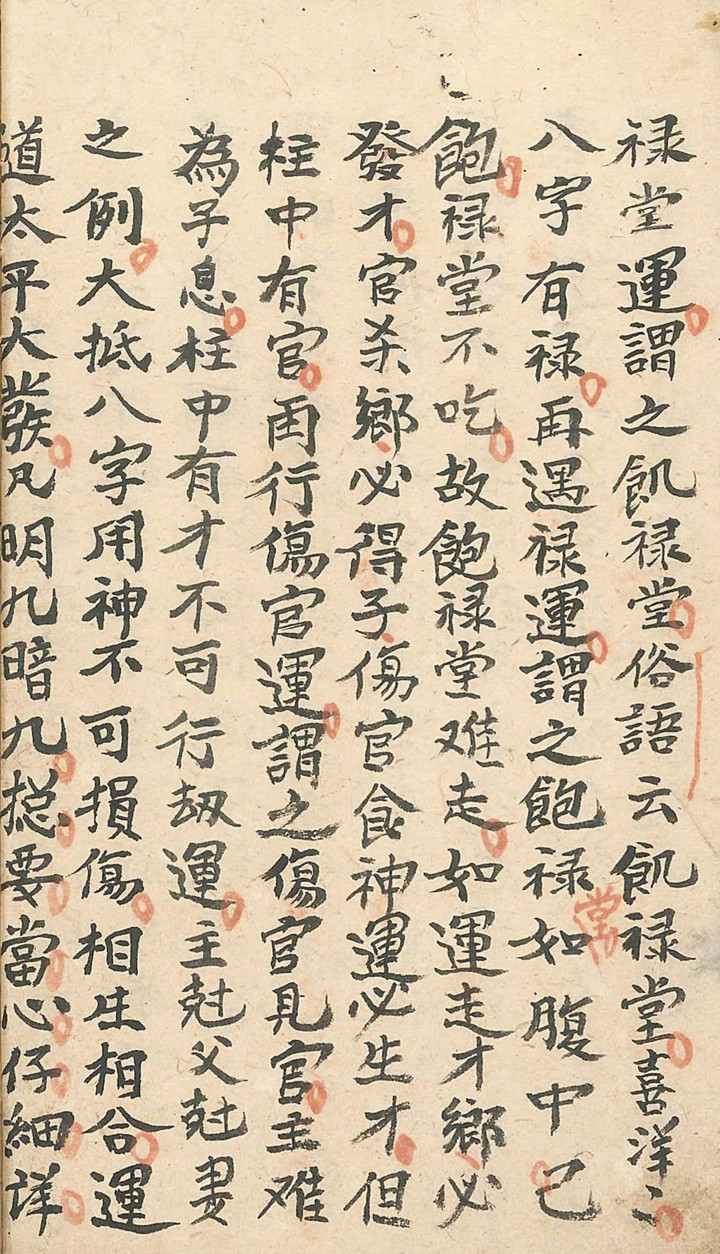 禄堂運謂之飢禄堂俗語云飢禄堂喜洋〻
八字有禄再遇禄運謂之飽禄堂如腹中已
飽禄堂不吃故飽禄堂难走如運走才鄉必
發才官杀鄉必得子傷官食神運必生才但
柱中有官再行傷官運謂之傷官見官主难
為子息柱中有才不可行刼運主尅父尅妻
之例大抵八字用神不可損傷相生相合運
道太平大發凡明九暗九捴要當心仔細詳